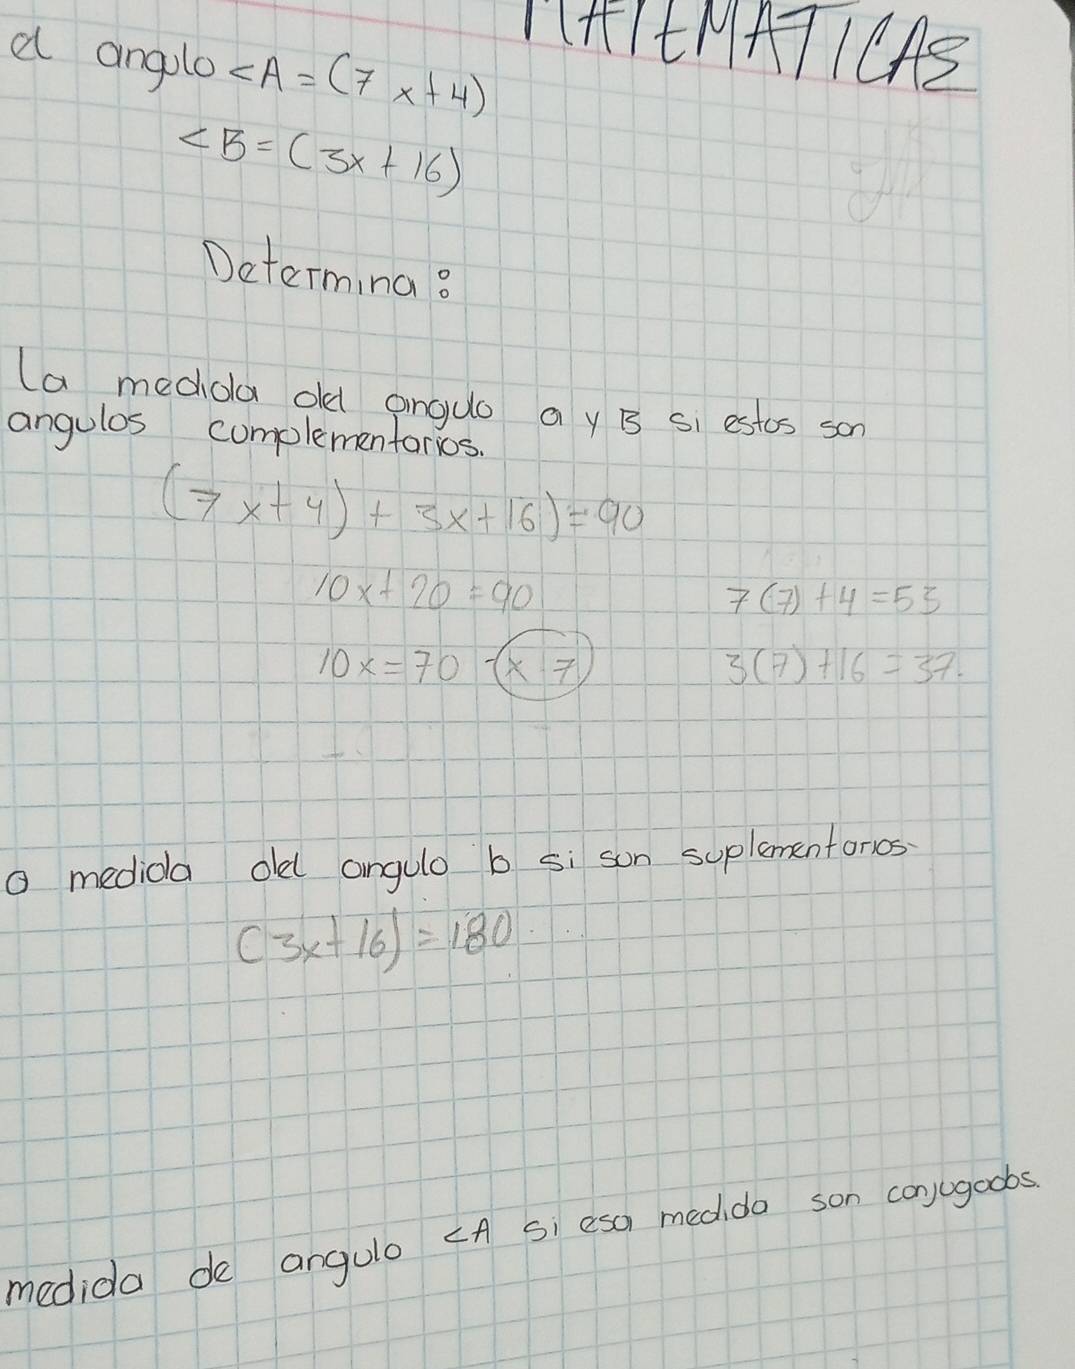 MATEMATICAS
el angulo <A = (7x+4)
<B = (3x+16)
Determina:
la medida del angulo a y B si estos son
angulos complementarios.
(7x+4) + 3x+16) = 90
10x+20 = 90
7(7)+4 = 53
10x = 70 - x 7
3(7)+16 = 37.
o medida del angulo b si son suplementarios
(3x+16) = 180
medida de angulo <A si esa medida son conjugados.